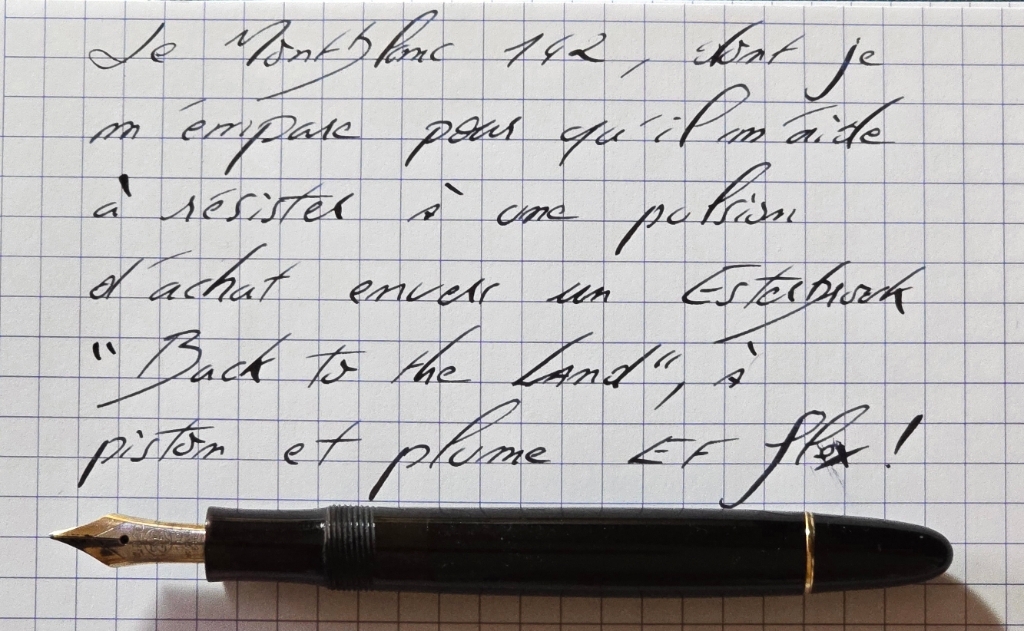 Le Montblanc 142, dont je
m'empare pour qu'il m'aide
à résister à une pulsion
d'achat envers un Esterbrook
"Back to the Land", à
piston et plume EF flex !